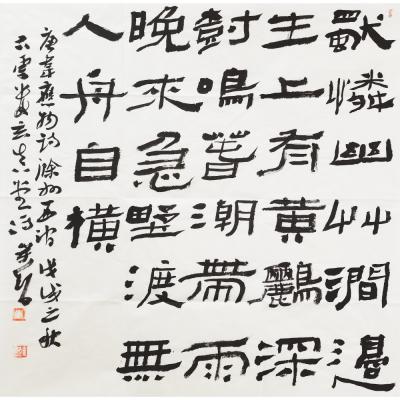 獨憐幽艸澗邊
生上有黃鸝深
樹鳴春潮帶雨
晚來急野渡無
人舟自橫
唐韋應物詩滁州西澗戊戌之秋